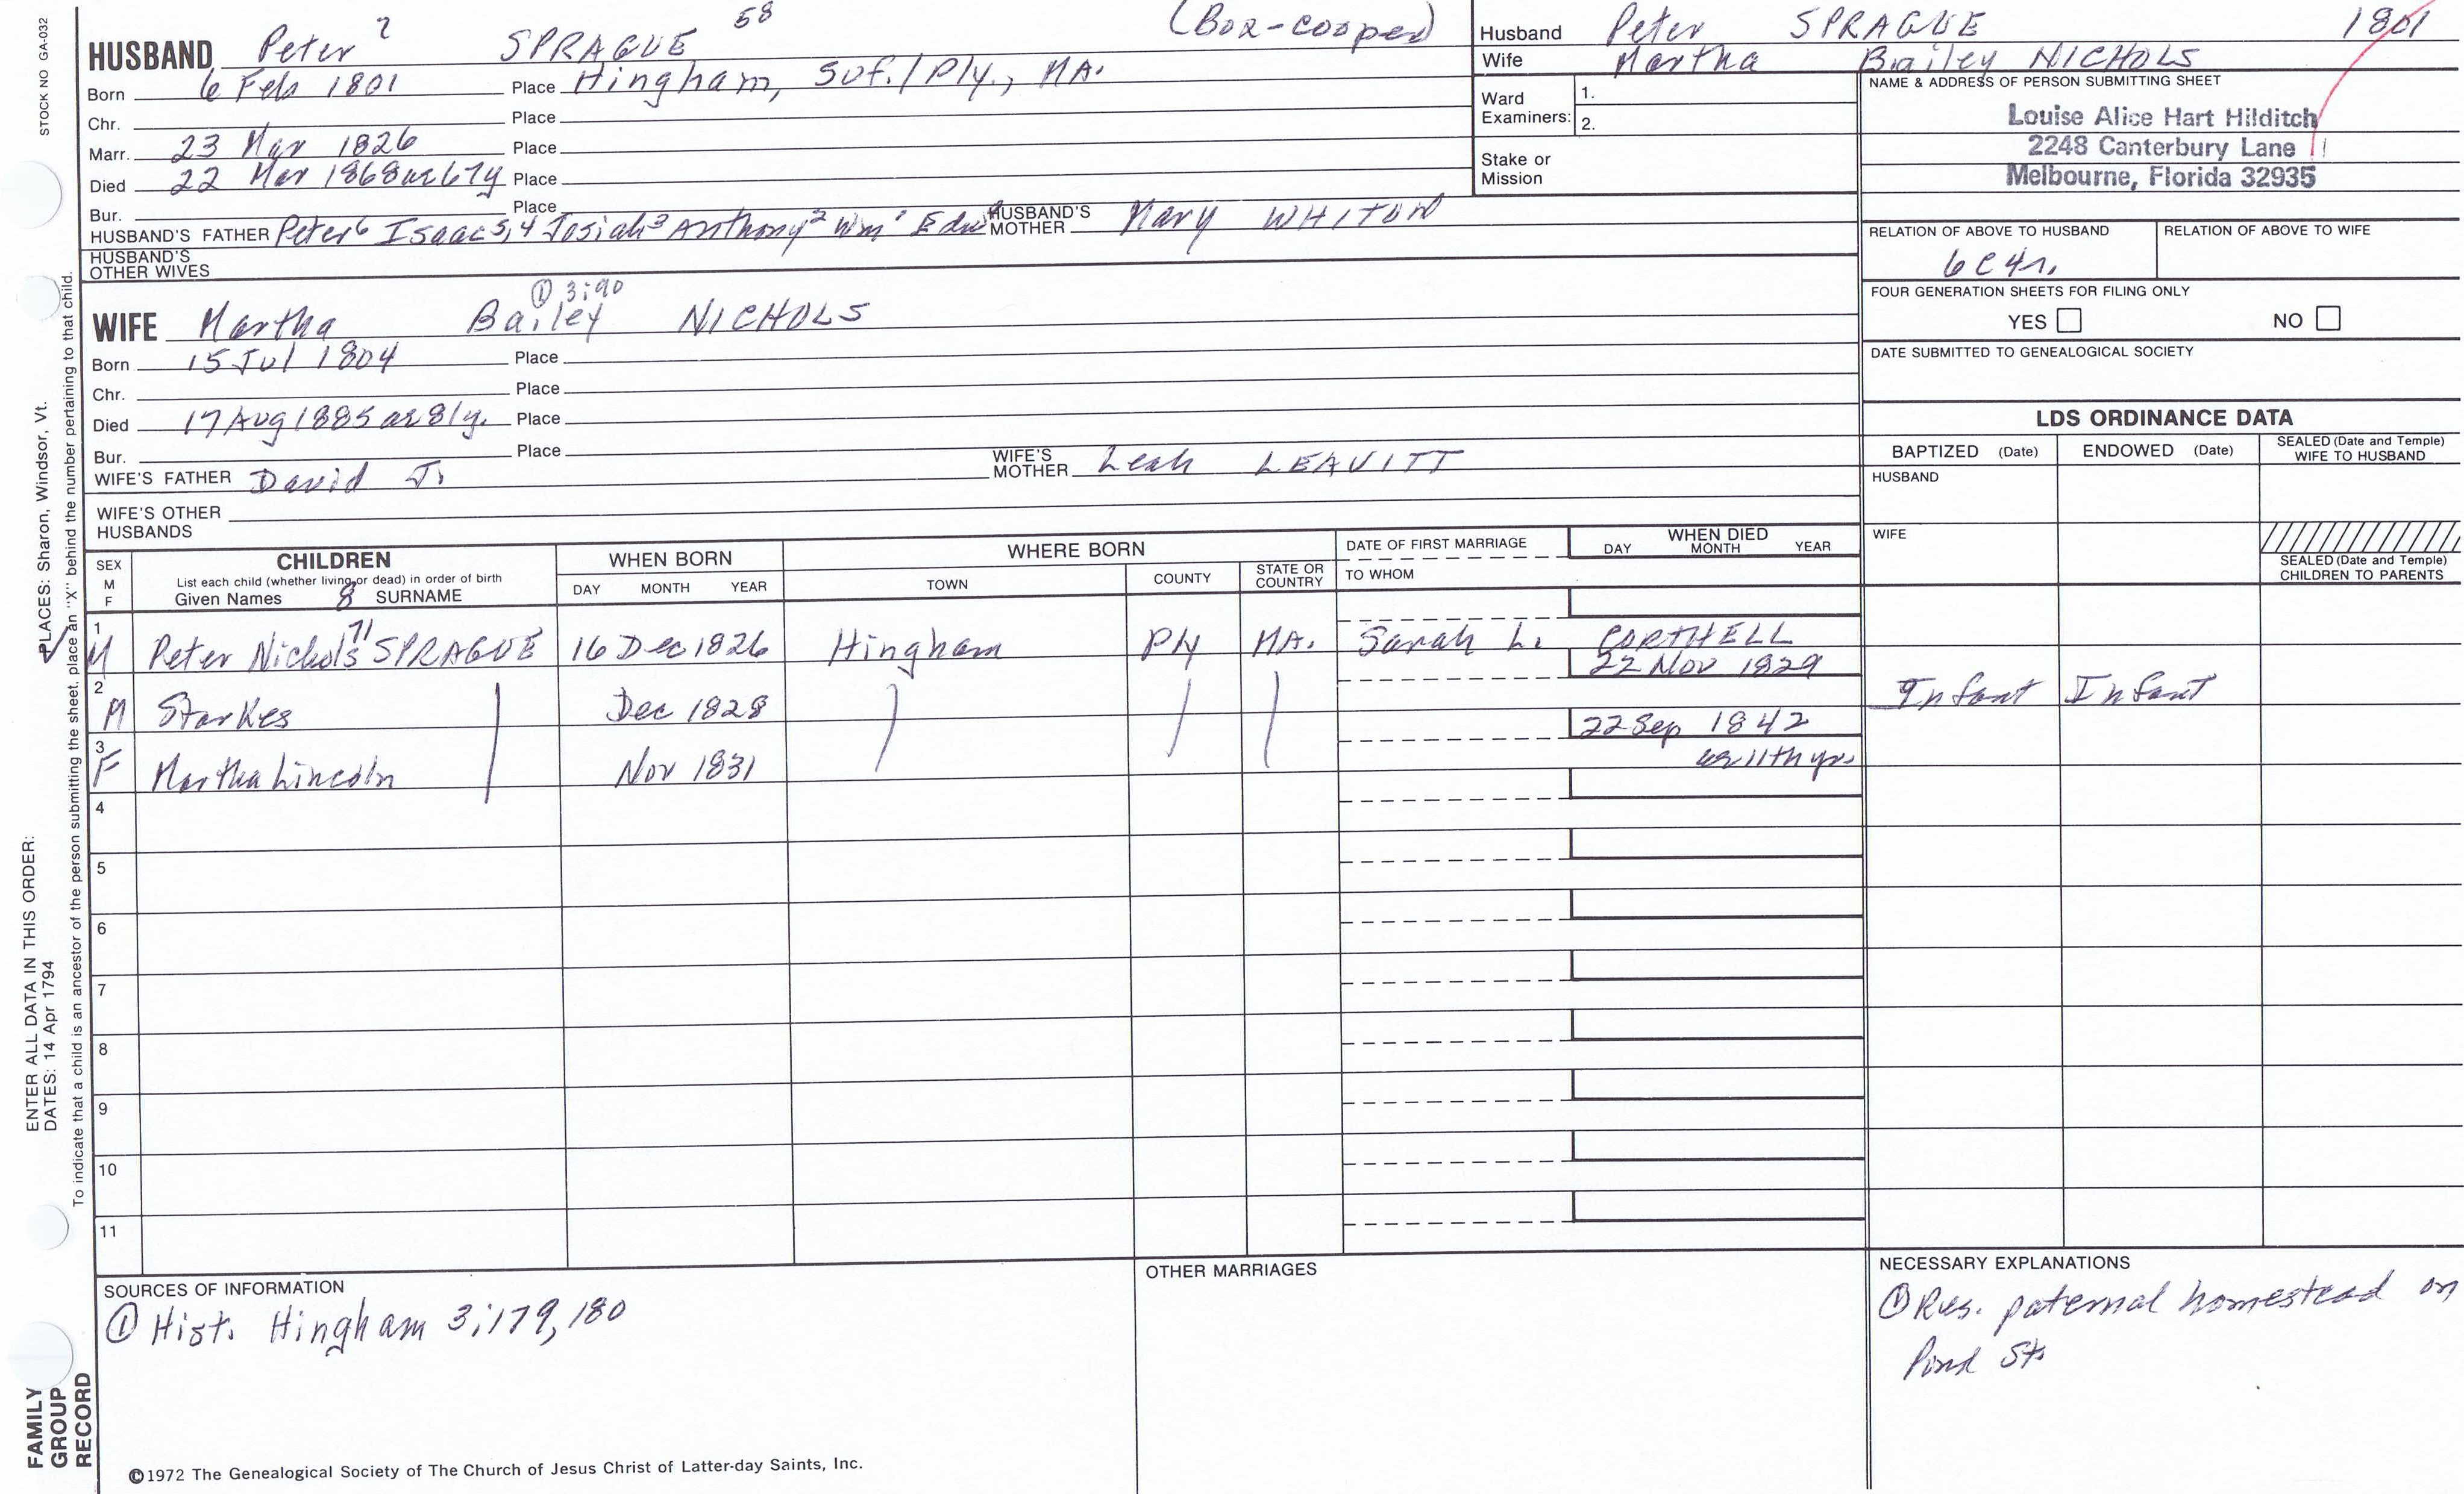 STOCK NO GA-032
HUSBAND Peter 7 SPRAGUE 58 (Box-cooper)
Born 6 Feb 1801 Place Hingham, Suf./Ply., MA.
Chr. Place
Marr. 23 Mar 1826 Place
Died 22 Mar 1868 ae 67y Place
Bur. Place
HUSBAND'S FATHER Peter6 Isaac5,4 Josiah3 Anthony2 Wm1 Edw HUSBAND'S MOTHER Mary WHITON
HUSBAND'S OTHER WIVES
① 3:90
WIFE Martha Bailey NICHOLS
Born 15 Jul 1804 Place
Chr. Place
Died 17 Aug 1885 ae 81y. Place
Bur. Place
WIFE'S FATHER David J. WIFE'S MOTHER Leah LEAVITT
WIFE'S OTHER HUSBANDS
Husband Peter SPRAGUE 1801
Wife Martha Bailey NICHOLS
Ward Examiners: 1.
2.
Stake or Mission
NAME & ADDRESS OF PERSON SUBMITTING SHEET
Louise Alice Hart Hilditch
2248 Canterbury Lane
Melbourne, Florida 32935
RELATION OF ABOVE TO HUSBAND RELATION OF ABOVE TO WIFE
6C4r.
FOUR GENERATION SHEETS FOR FILING ONLY
YES NO
DATE SUBMITTED TO GENEALOGICAL SOCIETY
LDS ORDINANCE DATA
BAPTIZED (Date) ENDOWED (Date) SEALED (Date and Temple) WIFE TO HUSBAND
HUSBAND
WIFE
SEALED (Date and Temple) CHILDREN TO PARENTS
SEX M F
CHILDREN
List each child (whether living or dead) in order of birth
Given Names 8 SURNAME
WHEN BORN
DAY MONTH YEAR
WHERE BORN
TOWN COUNTY STATE OR COUNTRY
DATE OF FIRST MARRIAGE
TO WHOM
WHEN DIED
DAY MONTH YEAR
1 M Peter Nichols 71 SPRAGUE 16 Dec 1826 Hingham Ply MA. Sarah L. CORTHELL
2 M Starkes Dec 1828 22 Nov 1829 Infant Infant
3 F Martha Lincoln Nov 1831 22 Sep 1842
ae 11th yr.
4
5
6
7
8
9
10
11
SOURCES OF INFORMATION
① Hist. Hingham 3;179,180
OTHER MARRIAGES
NECESSARY EXPLANATIONS
① Res. paternal homestead on
Pond St.
©1972 The Genealogical Society of The Church of Jesus Christ of Latter-day Saints, Inc.
ENTER ALL DATA IN THIS ORDER:
DATES: 14 Apr 1794
PLACES: Sharon, Windsor, Vt.
To indicate that a child is an ancestor of the person submitting the sheet, place an "X" behind the number pertaining to that child.
FAMILY
GROUP
RECORD